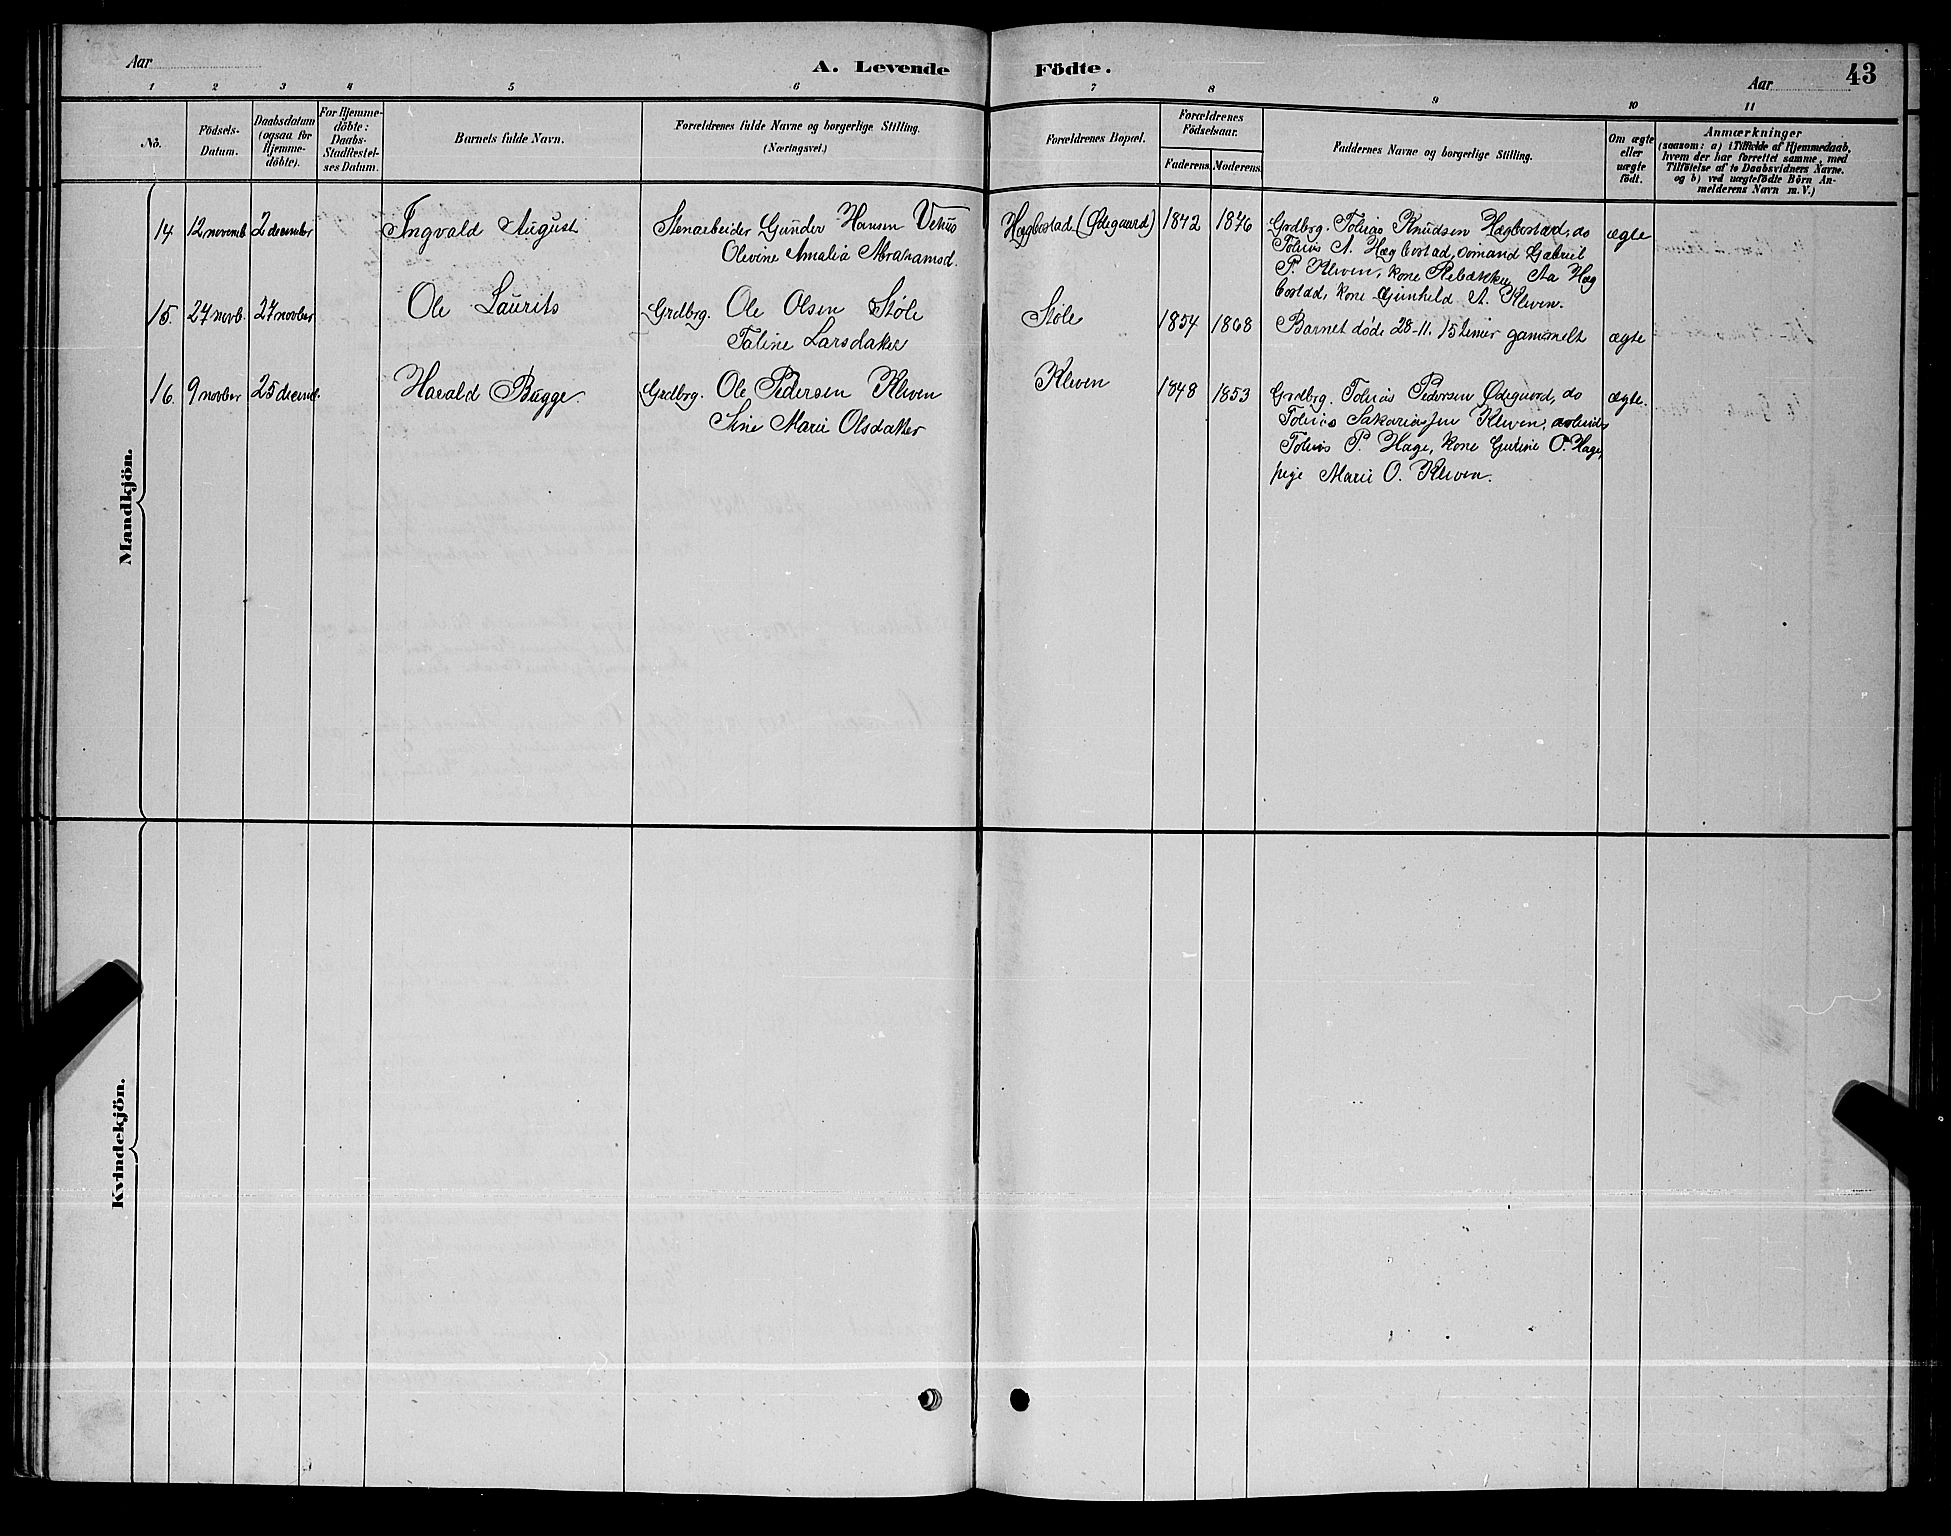 Aar
A. Levende Födte.
Aar
43
1 2 3 4 5 6 7 8 9 10 11
No.
Födsels-
Datum.
Daabsdatum
(ogsaa for
Hjemme-
döbte).
For Hjemme-
döbte:
Daabs-
Stadfestel-
ses Datum.
Barnets fulde Navn.
Forældrenes fulde Navne og borgerlige Stilling.
(Næringsvei.)
Forældrenes Bopæl.
Forældrenes
Födselsaar.
Faderens. Moderens.
Faddernes Navne og borgerlige Stilling.
Om ægte
eller
uægte
födt.
Anmærkninger
(saasom: a) i Tilfælde af Hjemmedaab,
hvem der har forrettet samme, med
Tilföielse af to Daabsvidners Navne.
og b) ved uægtefödte Börn An-
melderens Navn m. V.)
Mandkjön.
14 12 novemb 2 december Ingvald August Stenarbeider Gunder Hansen Vehus Hægbostad (Ødegaard) 1842 1876 Grdbrg. Tobias Knudsen Hægbostad, do ægte
Olevine Amalia Abrahamsd.
Tobias A. Hægbostad, somand Gabriel
P. Kleven, kone Rebækka Aa Hæg
bostad, kone Gunheld A. Kleven.
15. 27 novb. 27 novber Ole Laurits Grdbrg. Ole Olsen Støle Støle 1854 1868 Barnet døde 28-11. 15 timer gammelt ægte
Taline Larsdatter
16. 9 novber 25 decemb. Harald Bugge. Grdbrg. Ole Pedersen Kleven Kleven 1848 1853 Grdbrg. Tobias Pedersen Ødegaard, do ægte.
Sine Marie Olsdatter
Tobias Sakariasen Kleven,
Tobias P. Hage, kone Gurine O. Hage,
pige Marie O. Kleven.
Kvindekjön.